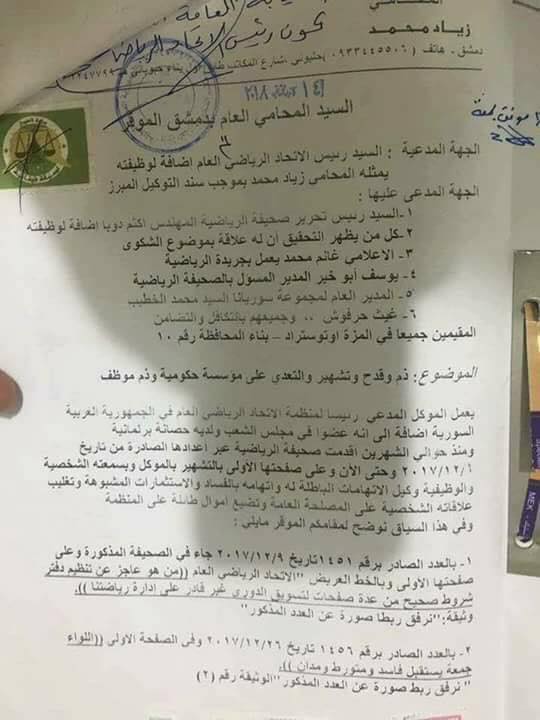 المحامي
زياد محمد
دمشق - هاتف / ٠٩٣٣٤٤٥٥٠٦ /
السيد المحامي العام بدمشق الموقر
الجهة المدعية : السيد رئيس الاتحاد الرياضي العام إضافة لوظيفته
يمثله المحامي زياد محمد بموجب سند التوكيل المبرز
الجهة المدعى عليها :
١-السيد رئيس تحرير صحيفة الرياضية المهندس اكثم دوبا إضافة لوظيفته
٢-كل من يظهر التحقيق ان له علاقة بموضوع الشكوى
٣- الاعلامي غانم محمد يعمل بجريدة الرياضية
٤- يوسف أبو خير المدير المسول بالصحيفة الرياضية
٥- المدير العام لمجموعة سوريانا السيد محمد الخطيب
٦- غيث حرفوش ،، وجميعهم بالتكافل والتضامن
المقيمين جميعا في المزة اوتوستراد – بناء المحافظة رقم ١٠
الموضوع: ذم وقدح وتشهير والتعدي على مؤسسة حكومية وذم موظف
يعمل الموكل المدعي رئيسا لمنظمة الاتحاد الرياضي العام في الجمهورية العربية
السورية اضافة الى انه عضوا في مجلس الشعب ولديه حصانة برلمانية
ومنذ حوالي الشهرين اقدمت صحيفة الرياضية عبر اعدادها الصادرة من تاريخ
٢٠١٧/١٢/٦ وحتى الآن وعلى صفحتها الاولى بالتشهير بالموكل وبسمعته الشخصية
والوظيفية وكيل الاتهامات الباطلة له واتهامه بالفساد والاستثمارات المشبوهة وتغليب
علاقاته الشخصية على المصلحة العامة وتضيع اموال طائلة على المنظمة
وفي هذا السياق نوضح لمقامكم الموقر مايلي :
١- بالعدد الصادر برقم ١٤٥١ تاريخ ٢٠١٧/١٢/٩ جاء في الصحيفة المذكورة وعلى
صفحتها الاولى وبالخط العريض "الاتحاد الرياضي العام ((من هو عاجز عن تنظيم دفتر
شروط صحيح من عدة صفحات لتسويق الدوري غير قادر على إدارة رياضتنا )).
وثيقة:"نرفق ربطا صورة عن العدد المذكور"
٢- بالعدد الصادر برقم ١٤٥٦ تاريخ ٢٠١٧/١٢/٢٦ وفي الصفحة الاولى ((اللواء
جمعة يستقبل فاسد ومتورط ومدان )).
" نرفق ربط صورة عن العدد المذكور"الوثيقة رقم (٢)
MEK